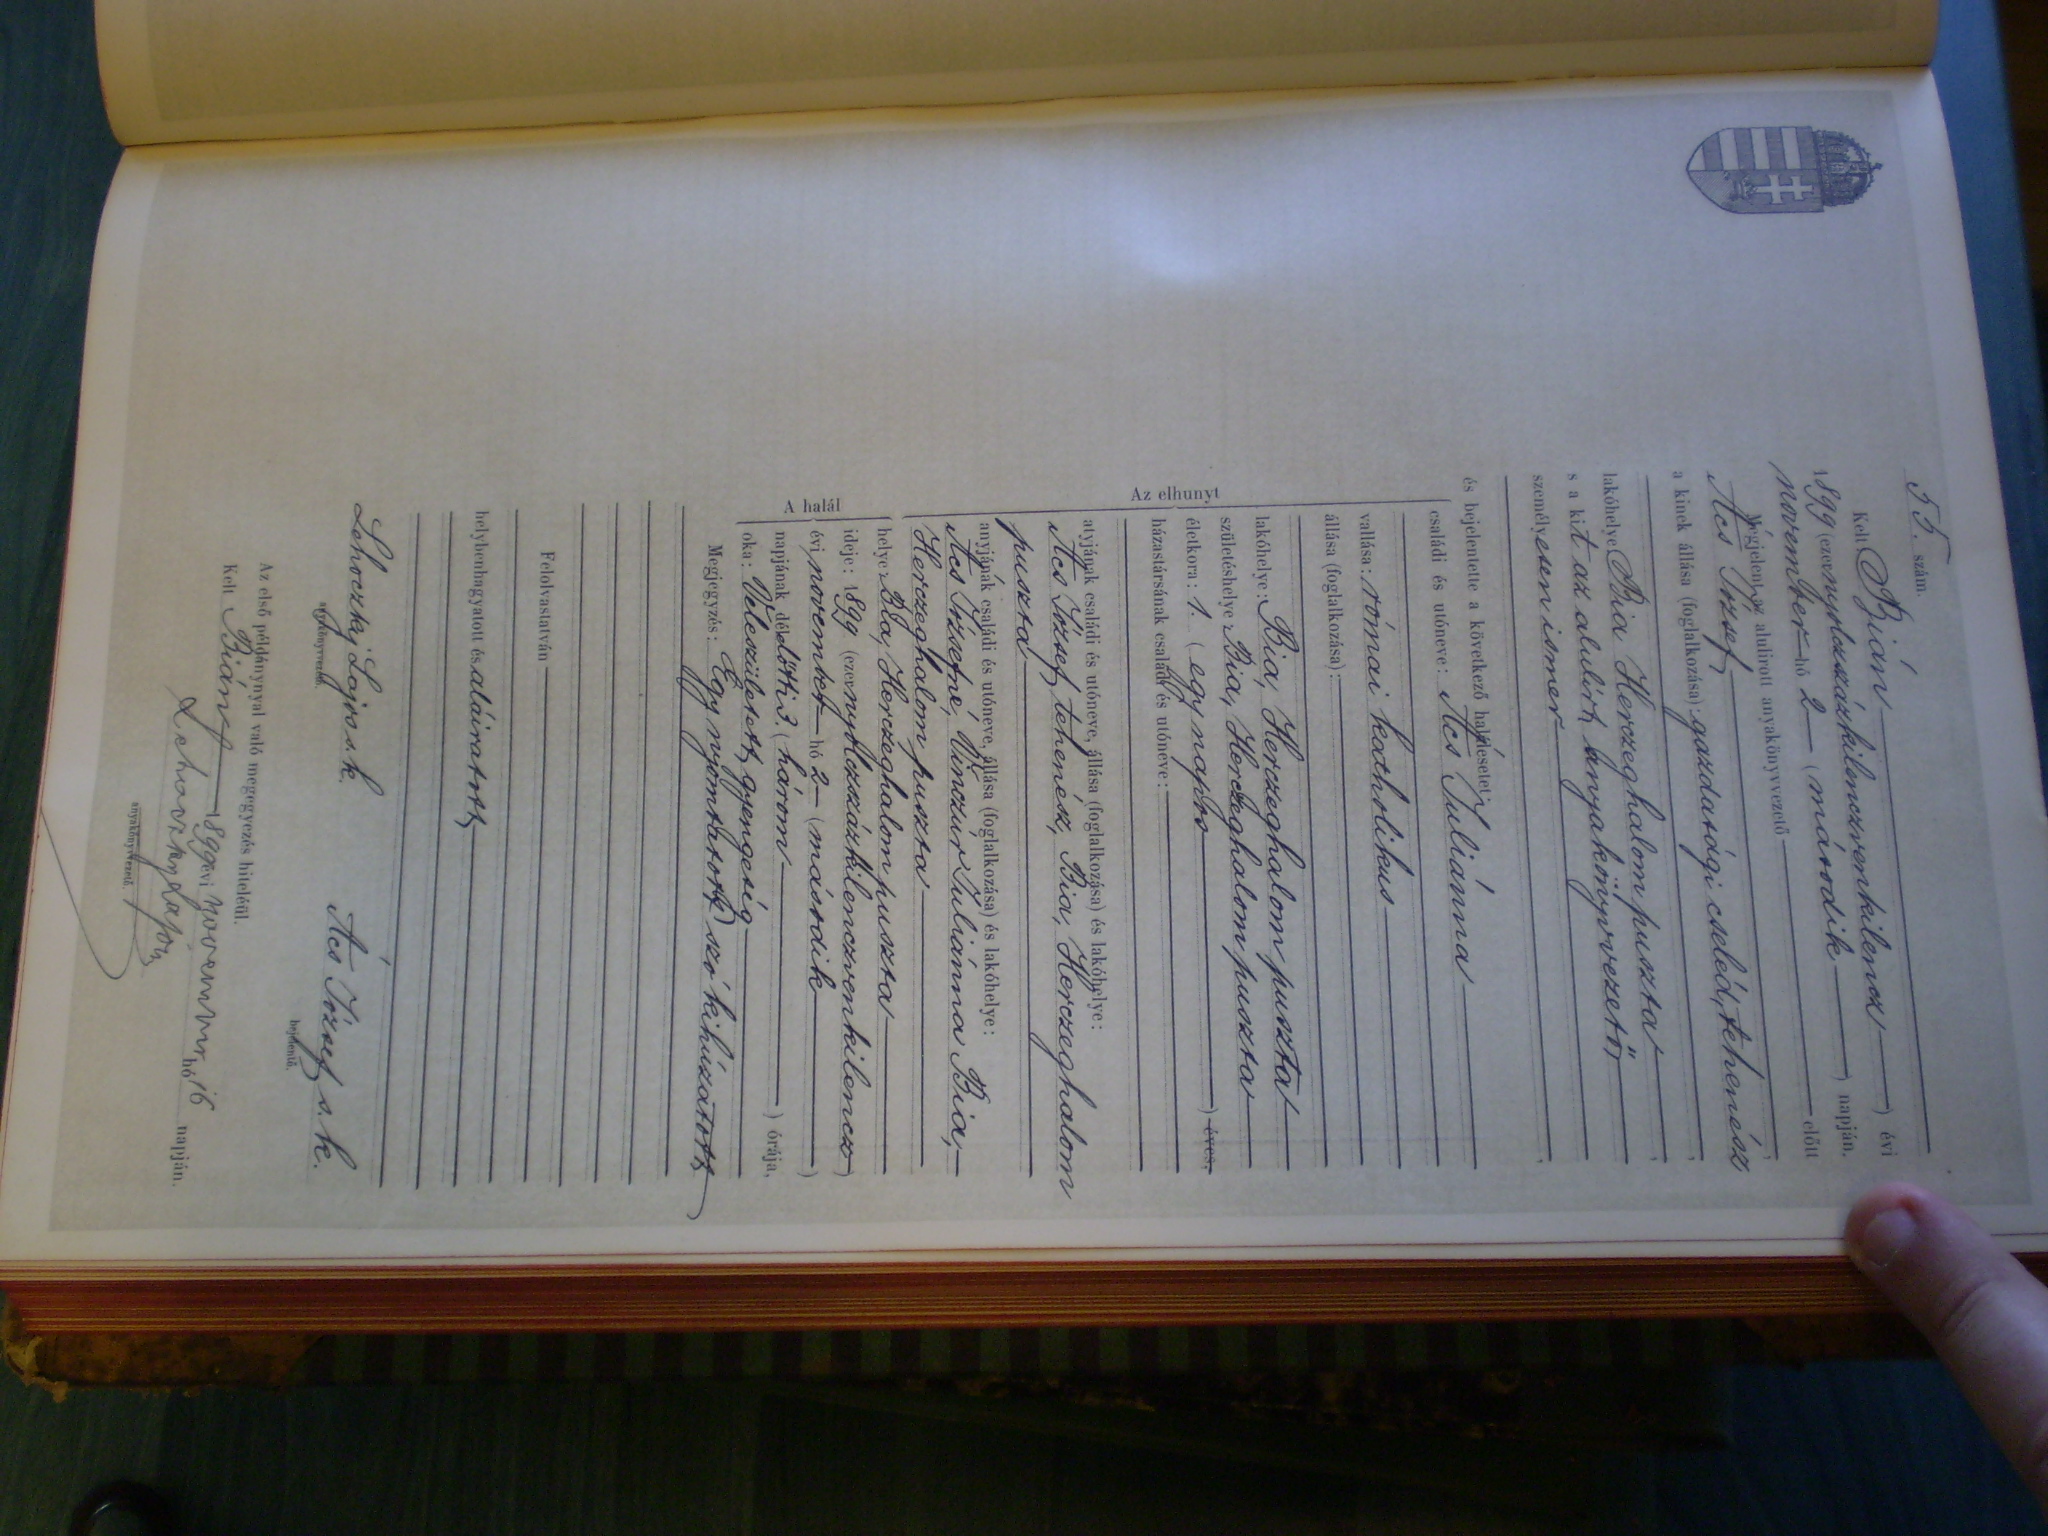 55. szám.
Kelt Bián évi
1899 (ezernyolczszázkilenczvenkilencz )
november hó 2 (második ) napján.
Megjelent az alulirott anyakönyvvezető előtt
Ács József,
a kinek állása (foglalkozása): gazdasági cseléd, tehenész
lakóhelye Bia Herczeghalom puszta
s a kit az alulírt anyakönyvvezető
személyesen ismer
és bejelentette a következő halálesetet:
családi és utóneve: Ács Juliánna
vallása: római katholikus
állása (foglalkozása):
lakóhelye: Bia, Herczeghalom puszta
születéshelye Bia, Herczeghalom puszta
életkora: 1. (egy napos ) éves,
házastársának családi és utóneve:
Az elhunyt
atyjának családi és utóneve, állása (foglalkozása) és lakóhelye:
Ács József, tehenész, Bia, Herczeghalom
puszta
anyjának családi és utóneve, állása (foglalkozása) és lakóhelye:
Ács Józsefné, Vinszur Juliánna Bia,
Herczeghalom puszta
A halál
helye: Bia, Herczeghalom puszta
ideje: 1899 (ezernyolczszázkilenczvenkilencz)
évi november hó 2 (második )
napjának délelőtti 3. (három ) órája,
oka: Veleszületett gyengeség
Megjegyzés: Egy nyomtatott szó kihúzatott,
Felolvastatván
helybenhagyatott és aláiratott,
Lehoczky Lajos s. k. Ács József s. k.
anyakönyvvezető. bejelentő.
Az első példánynyal való megegyezés hiteléül.
Kelt Bián 1899 évi november hó 16 napján.
Lehoczky Lajos
anyakönyvvezető.